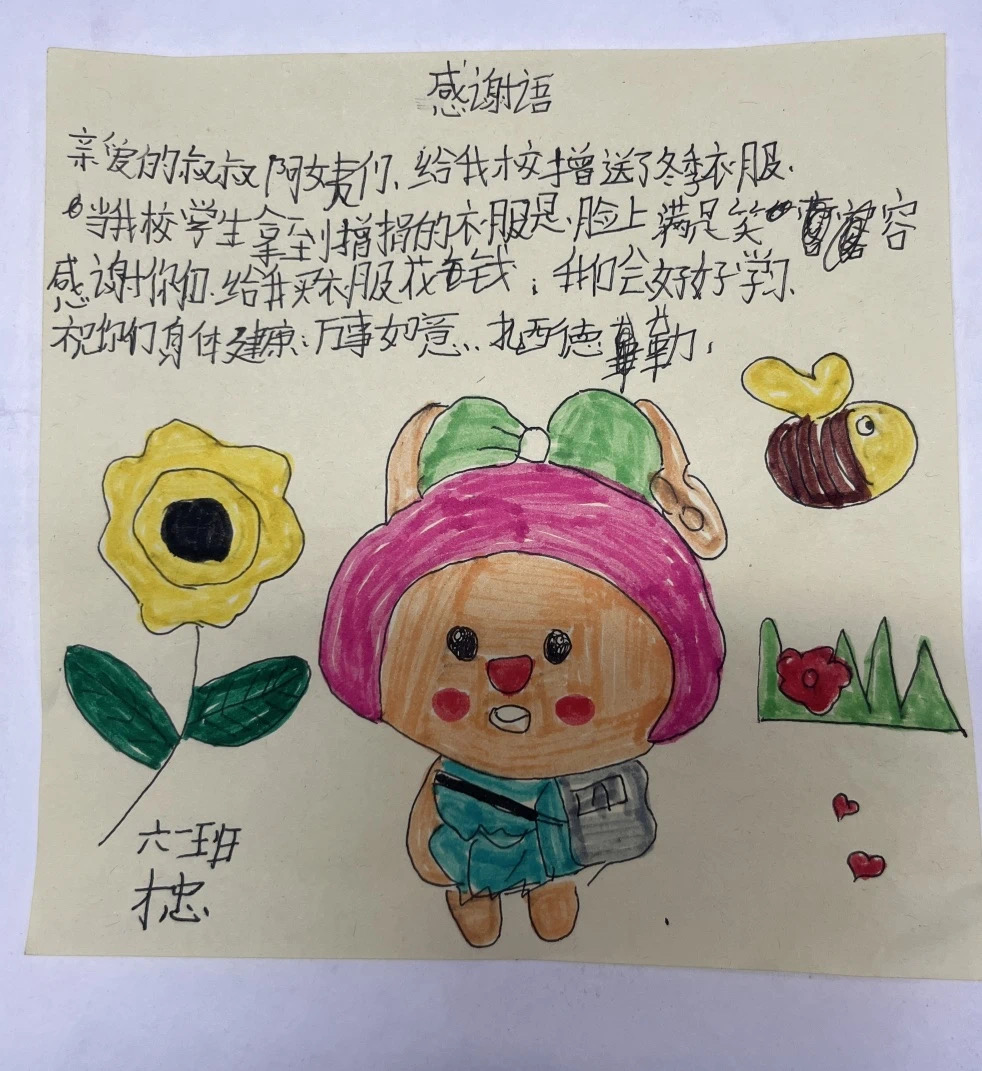 感谢语
亲爱的叔叔阿姨们、给我校增送了冬季衣服.
当我校学生拿到增捐的衣服是.脸上满是笑容
感谢你们.给我买衣服花钱；我们会好好学习.
祝你们身体健康：万事如意..扎西德勒.
六二班
才忠.